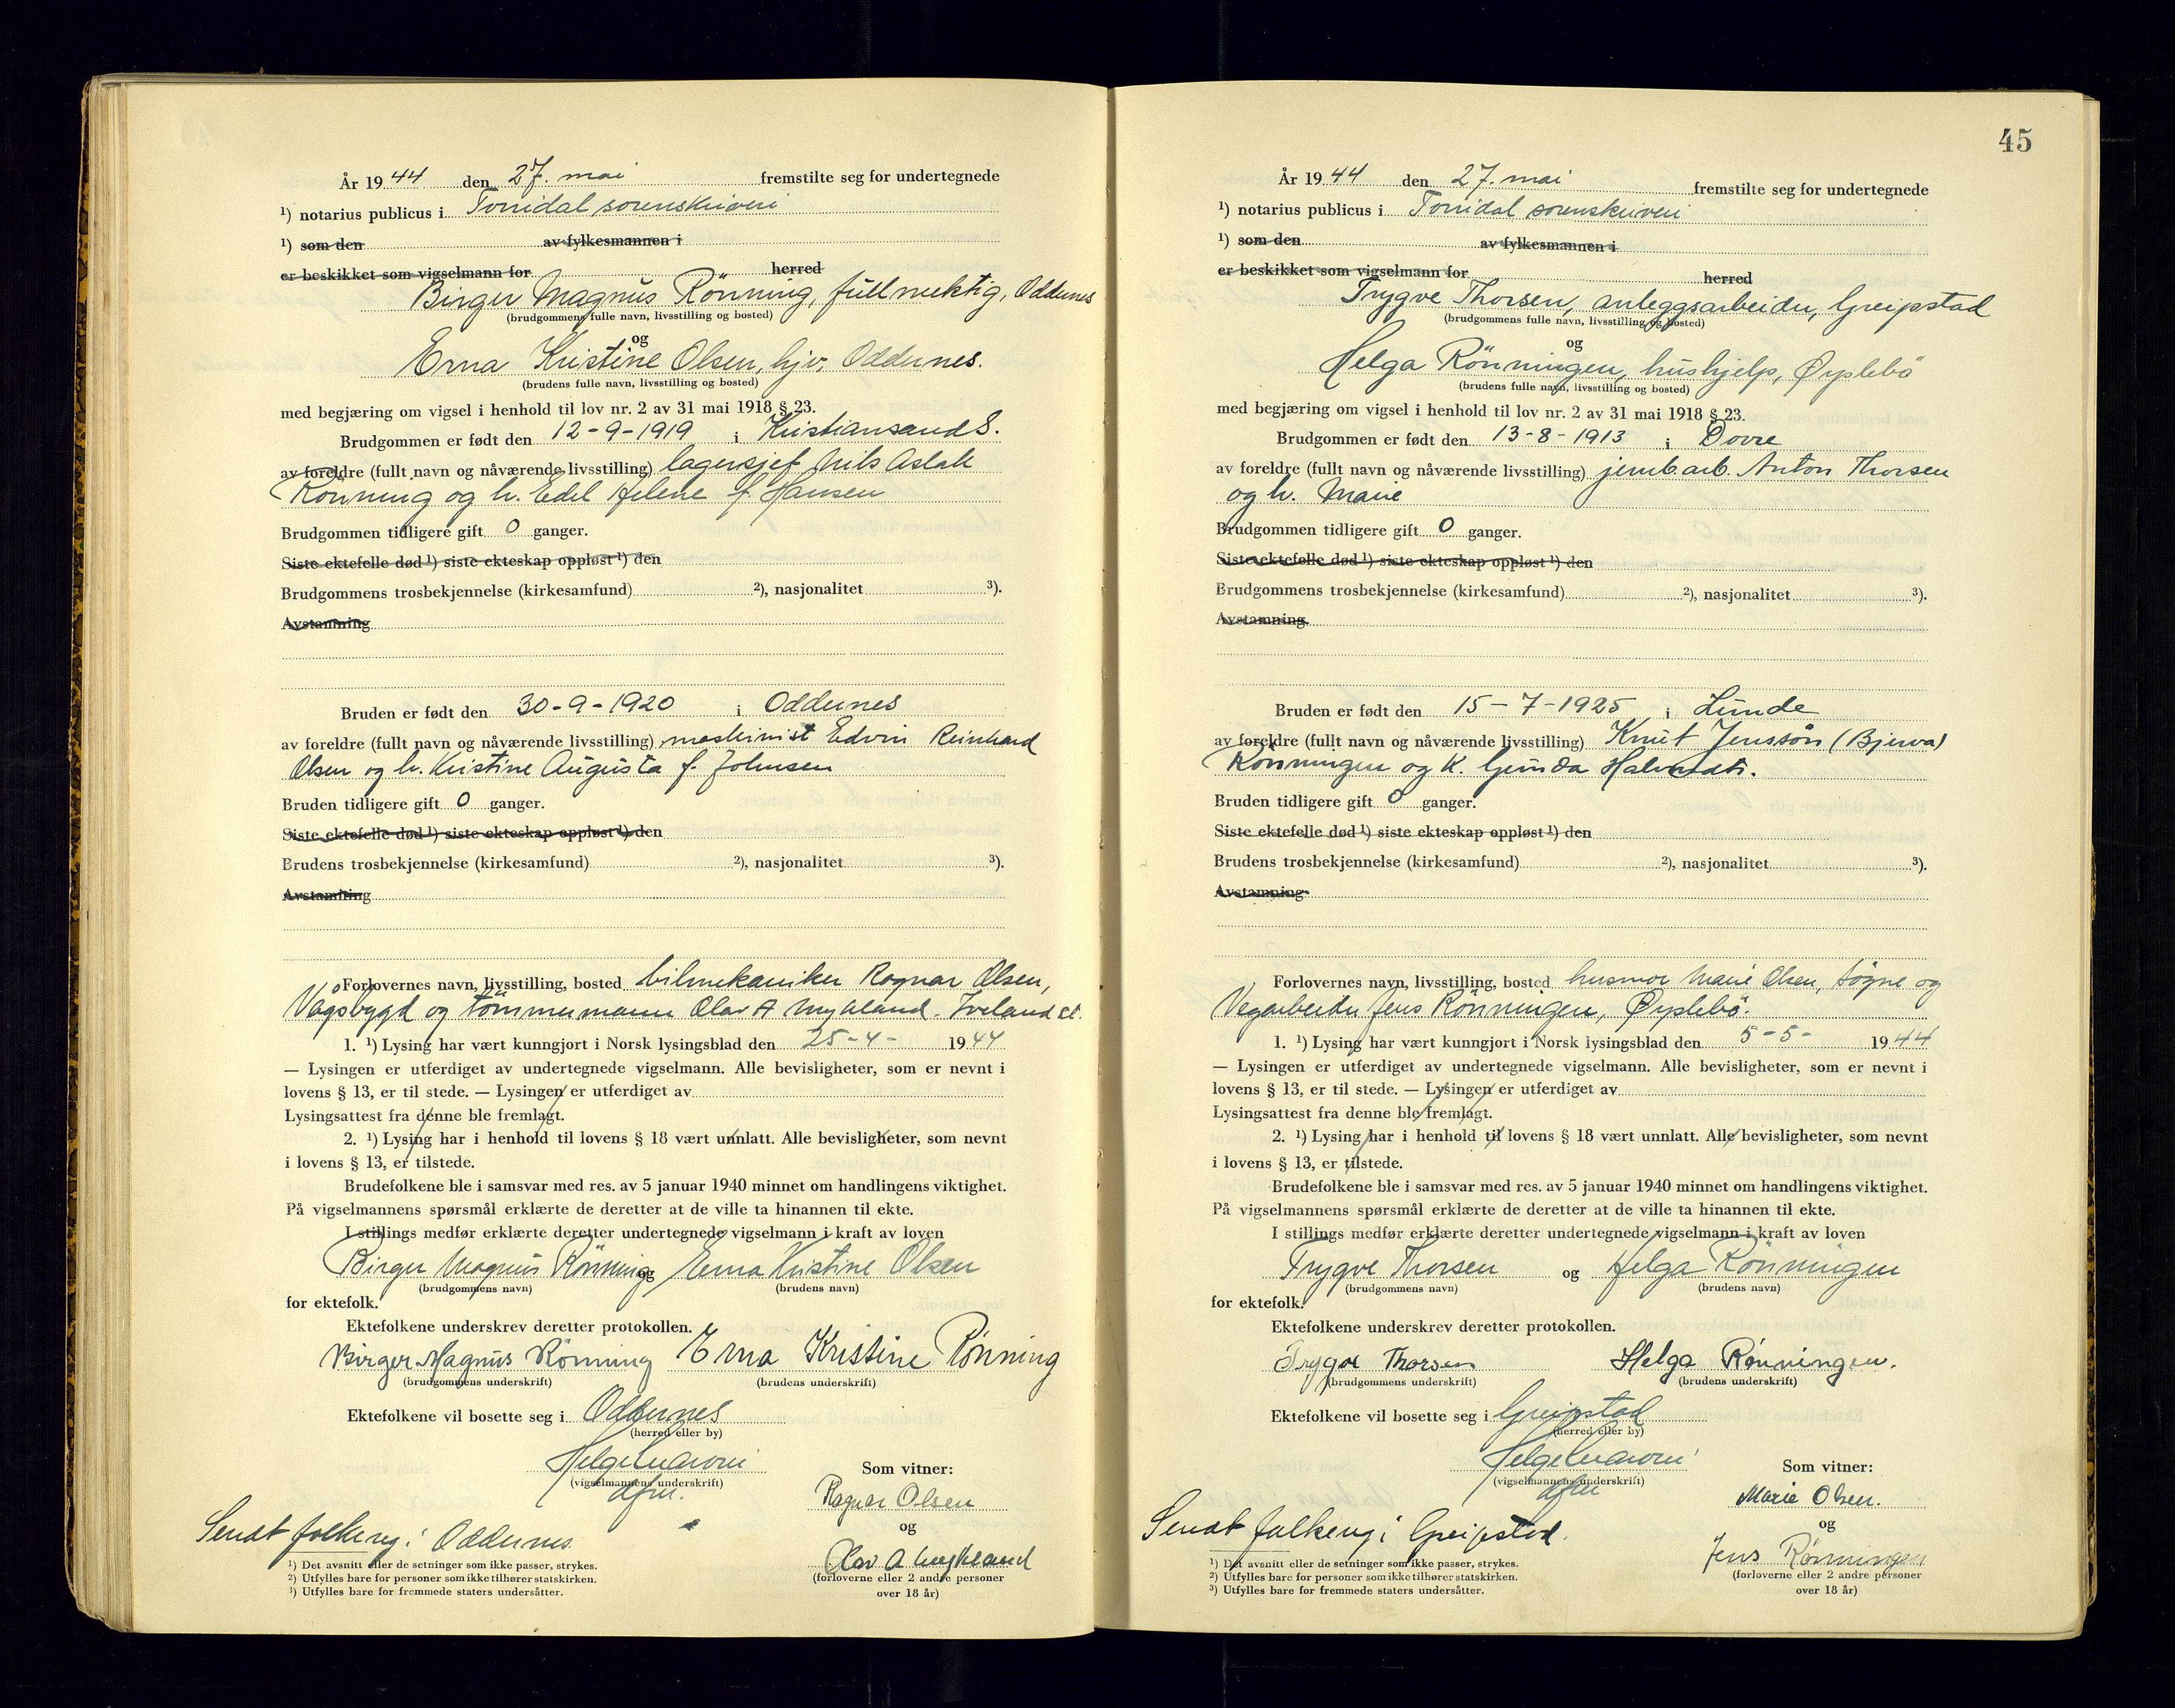 År 1944 den 27. mai fremstilte seg for undertegnede
¹) notarius publicus i Torridal sorenskriveri
¹) som den av fylkesmannen i
er beskikket som vigselmann for herred
Birger Magnus Rönning, fullmektig, Oddernes
(brudgommens fulle navn, livsstilling og bosted)
og
Erna Kristine Olsen, hjv, Oddernes.
(brudens fulle navn, livsstilling og bosted)
med begjæring om vigsel i henhold til lov nr. 2 av 31 mai 1918 § 23.
Brudgommen er født den 12-9-1919 i Kristiansand S.
av foreldre (fullt navn og nåværende livsstilling) lagersjef Nils Aslak
Rönning og h. Edel Helene f. Hansen
Brudgommen tidligere gift 0 ganger.
Siste ektefelle død ¹) siste ekteskap oppløst ¹) den
Brudgommens trosbekjennelse (kirkesamfund) ²), nasjonalitet ³).
Avstamning
Bruden er født den 30-9-1920 i Oddernes
av foreldre (fullt navn og nåværende livsstilling) maskinist Edvin Reinhard
Olsen og h. Kristine Augusta f. Johnsen
Bruden tidligere gift 0 ganger.
Siste ektefelle død ¹) siste ekteskap oppløst ¹) den
Brudens trosbekjennelse (kirkesamfund) ²), nasjonalitet ³).
Avstamning
Forlovernes navn, livsstilling, bosted bilmekaniker Ragnar Olsen,
Vågsbygd og tömmermann Olav A Mykland. Iveland st.
1. ¹) Lysing har vært kunngjort i Norsk lysingsblad den 25-4- 1944
— Lysingen er utferdiget av undertegnede vigselmann. Alle bevisligheter, som er nevnt i
lovens § 13, er til stede. — Lysingen er utferdiget av
Lysingsattest fra denne ble fremlagt.
2. ¹) Lysing har i henhold til lovens § 18 vært unnlatt. Alle bevisligheter, som nevnt
i lovens § 13, er tilstede.
Brudefolkene ble i samsvar med res. av 5 januar 1940 minnet om handlingens viktighet.
På vigselmannens spørsmål erklærte de deretter at de ville ta hinannen til ekte.
I stillings medfør erklærte deretter undertegnede vigselmann i kraft av loven
Birger Magnus Rönning og Erna Kristine Olsen
(brudgommens navn) (brudens navn)
for ektefolk.
Ektefolkene underskrev deretter protokollen.
Birger Magnus Rönning Erna Kristine Rønning
(brudgommens underskrift) (brudens underskrift)
Ektefolkene vil bosette seg i Oddernes
(herred eller by)
(vigselmannens underskrift)
Som vitner:
Ragnar Olsen
og
Olav A Mykland
(forloverne eller 2 andre personer
over 18 år)
Sendt folkereg. i Oddernes
¹) Det avsnitt eller de setninger som ikke passer, strykes.
²) Utfylles bare for personer som ikke tilhører statskirken.
³) Utfylles bare for fremmede staters undersåtter.
45
År 1944 den 27. mai fremstilte seg for undertegnede
¹) notarius publicus i Torridal sorenskriveri
¹) som den av fylkesmannen i
er beskikket som vigselmann for herred
Trygve Thorsen, anleggsarbeider, Greipstad
(brudgommens fulle navn, livsstilling og bosted)
og
Helga Rönningen, hushjelp, Øyslebö
(brudens fulle navn, livsstilling og bosted)
med begjæring om vigsel i henhold til lov nr. 2 av 31 mai 1918 § 23.
Brudgommen er født den 13-8-1913 i Dovre
av foreldre (fullt navn og nåværende livsstilling) jernb.arb. Anton Thorsen
og h. Marie
Brudgommen tidligere gift 0 ganger.
Siste ektefelle død ¹) siste ekteskap oppløst ¹) den
Brudgommens trosbekjennelse (kirkesamfund) ²), nasjonalitet ³).
Avstamning
Bruden er født den 15-7-1925 i Lunde
av foreldre (fullt navn og nåværende livsstilling) Knut Jenssön (Bjerva)
Rönningen og K. Gunda Halvordt.
Bruden tidligere gift 0 ganger.
Siste ektefelle død ¹) siste ekteskap oppløst ¹) den
Brudens trosbekjennelse (kirkesamfund) ²), nasjonalitet ³).
Avstamning
Forlovernes navn, livsstilling, bosted husmor Marie Olsen, Søgne og
Vegarbeider Jens Rönningen, Øyslebö.
1. ¹) Lysing har vært kunngjort i Norsk lysingsblad den 5-5- 1944
— Lysingen er utferdiget av undertegnede vigselmann. Alle bevisligheter, som er nevnt i
lovens § 13, er til stede. — Lysingen er utferdiget av
Lysingsattest fra denne ble fremlagt.
2. ¹) Lysing har i henhold til lovens § 18 vært unnlatt. Alle bevisligheter, som nevnt
i lovens § 13, er tilstede.
Brudefolkene ble i samsvar med res. av 5 januar 1940 minnet om handlingens viktighet.
På vigselmannens spørsmål erklærte de deretter at de ville ta hinannen til ekte.
I stillings medfør erklærte deretter undertegnede vigselmann i kraft av loven
Trygve Thorsen og Helga Rönningen
(brudgommens navn) (brudens navn)
for ektefolk.
Ektefolkene underskrev deretter protokollen.
Trygve Thorsen Helga Rønningen.
(brudgommens underskrift) (brudens underskrift)
Ektefolkene vil bosette seg i Greipstad
(herred eller by)
(vigselmannens underskrift)
Som vitner:
Marie Olsen.
og
Jens Rønningen
(forloverne eller 2 andre personer
over 18 år)
Sendt folkereg i Greipstad.
¹) Det avsnitt eller de setninger som ikke passer, strykes.
²) Utfylles bare for personer som ikke tilhører statskirken.
³) Utfylles bare for fremmede staters undersåtter.